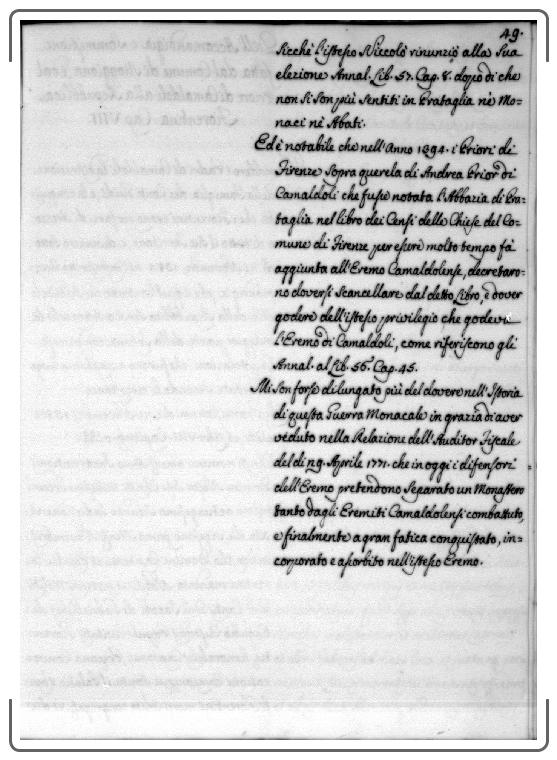 49.
Sicchè l'istesso Niccolò rinunziò alla Sua
elezione Annal. Lib. 57. Cap. 8. dopo di che
non si son più Sentiti in Prataglia nè Mo=
naci nè Abati.
Ed è notabile che nell'Anno 1394. i Priori di
Firenze Sopra querela di Andrea Prior di
Camaldoli che fuße notata l'Abbazia di Pra=
taglia nel libro dei Censi delle Chiese del Co=
mune di Firenze per eßere molto tempo fà
aggiunta all'Eremo Camaldolense, decretaro=
no doversi Scancellare dal detto Libro, e dover
godere dell'isteßo privilegio che godeva
l'Eremo di Camaldoli, come riferiscono gli
Annal. al Lib. 56. Cap. 45.
Mi son forse dilungato più del dovere nell'Istoria
di questa Guerra Monacale in grazia di aver
veduto nella Relazione dell'Auditor Fiscale
del dì 19. Aprile 1771. che in oggi i difensori
dell'Eremo pretendono Separato un Monastero
tanto dagli Eremiti Camaldolensi combattuto,
e finalmente a gran fatica conquistato, in=
corporato e aßorbito nell'isteßo Eremo.